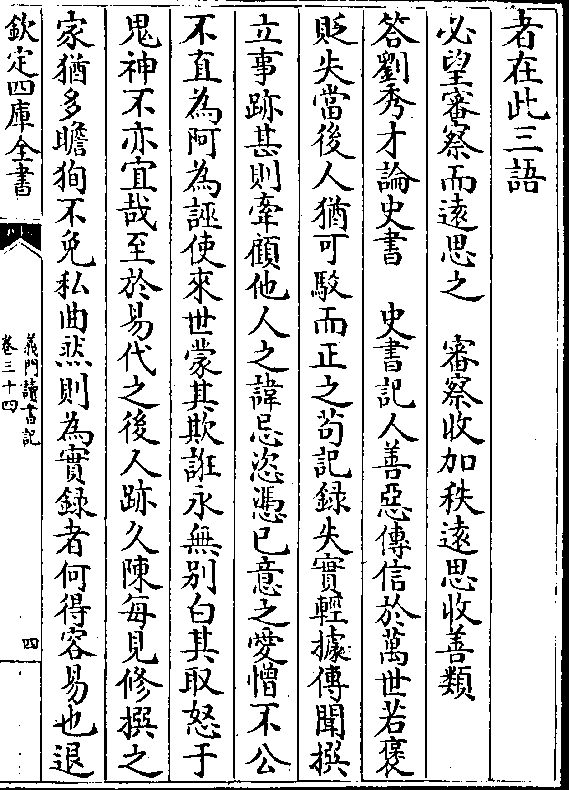 者在此三語
必望審察而遠思之　審察收加秩遠思收善類
答劉秀才論史書　史書記人善惡傳信於萬世若褒
貶失當後人猶可駁而正之苟記録失實輕據傳聞撰
立事跡甚則牽顧他人之諱忌恣憑已意之愛憎不公
不直為阿為誣使來世蒙其欺誑永無别白其取怒于
鬼神不亦宜哉至於易代之後人跡久陳每見修撰之
家猶多瞻狥不免私曲然則為實録者何得容易也退
欽定四庫全書
義門讀書記
卷三十四
四